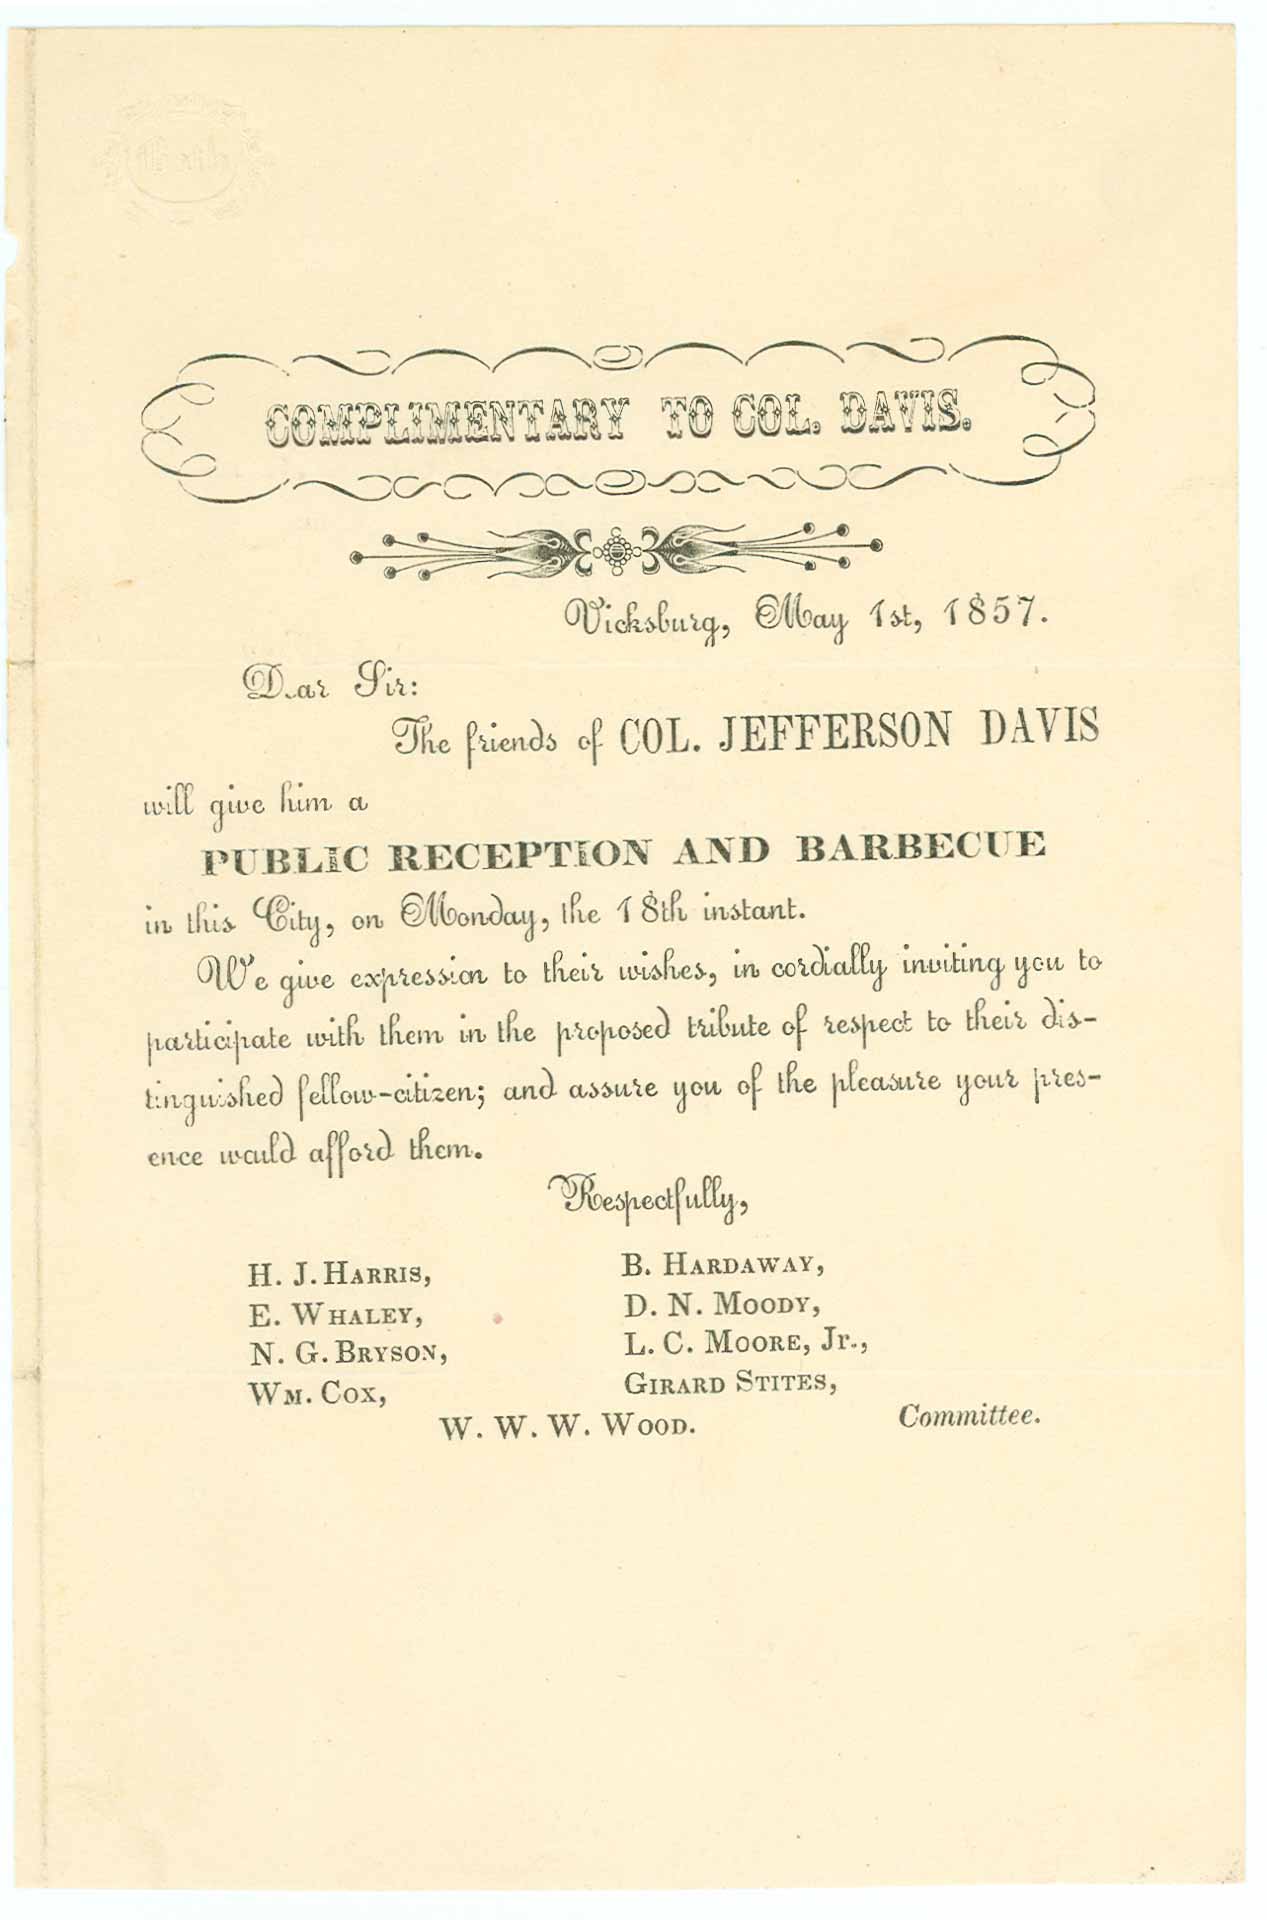 COMPLIMENTARY TO COL. DAVIS.
Vicksburg, May 1st, 1857.
Dear Sir:
The friends of COL. JEFFERSON DAVIS
will give him a
PUBLIC RECEPTION AND BARBECUE
in this City, on Monday, the 18th instant.
We give expression to their wishes, in cordially inviting you to
participate with them in the proposed tribute of respect to their dis-
tinguished fellow-citizen; and assure you of the pleasure your pres-
ence would afford them.
Respectfully,
H. J. HARRIS,
E. WHALEY,
N. G. BRYSON,
WM. COX,
B. HARDAWAY,
D. N. MOODY,
L. C. MOORE, Jr.,
GIRARD STITES,
W. W. W. WOOD.
Committee.